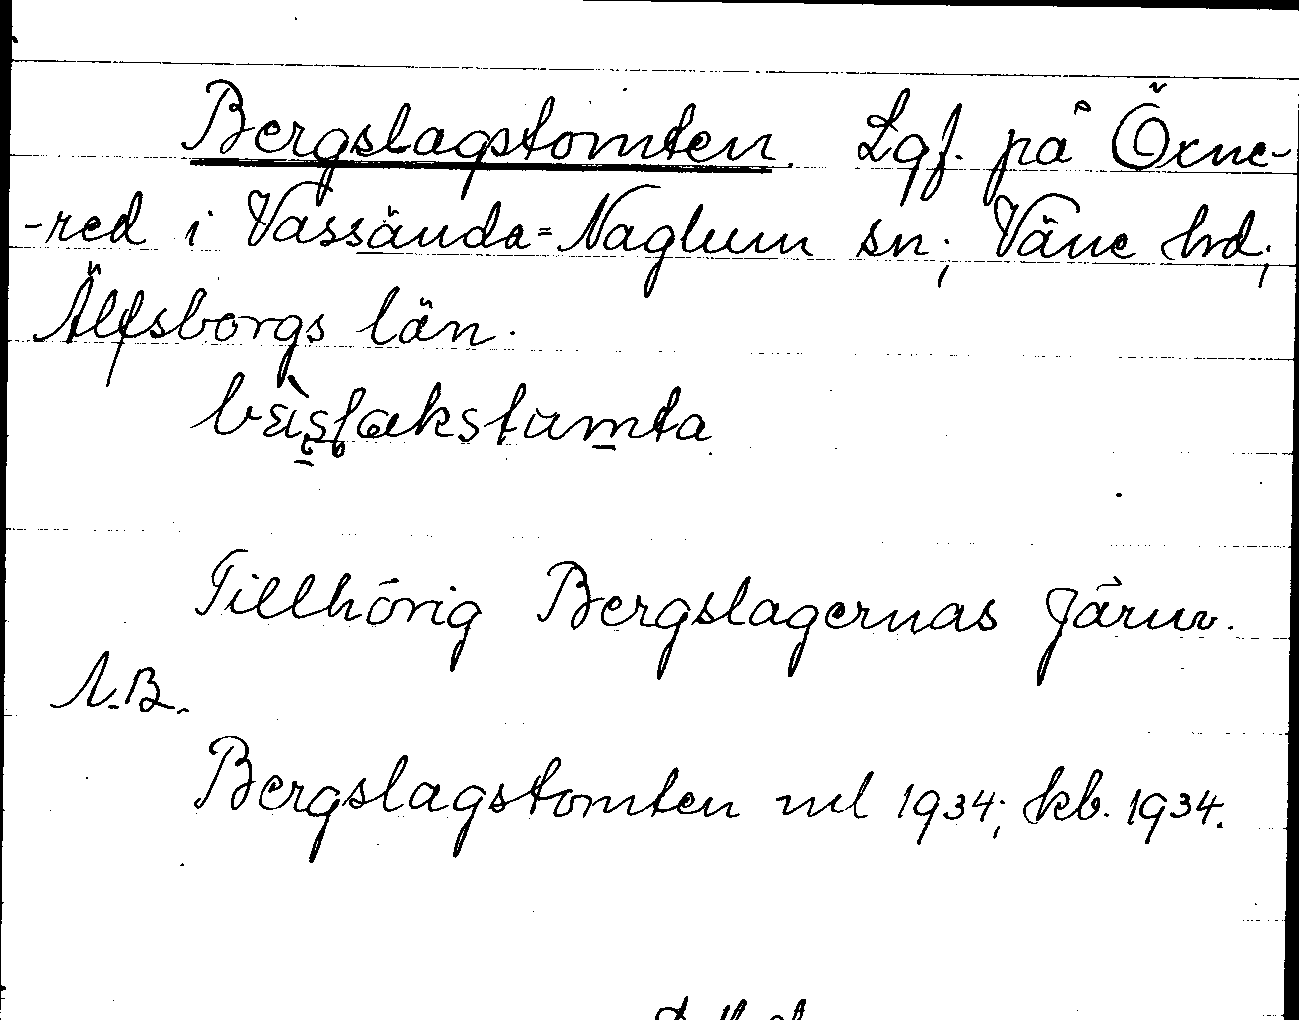 Bergslagstomten. Lgf. på Öxne-
-red i Vassända-Naglum sn; Väne hd;
Älfsborgs län.
Tillhörig Bergslagernas Järnv.
N.B.
Bergslagstomten ml 1934; kb. 1934.